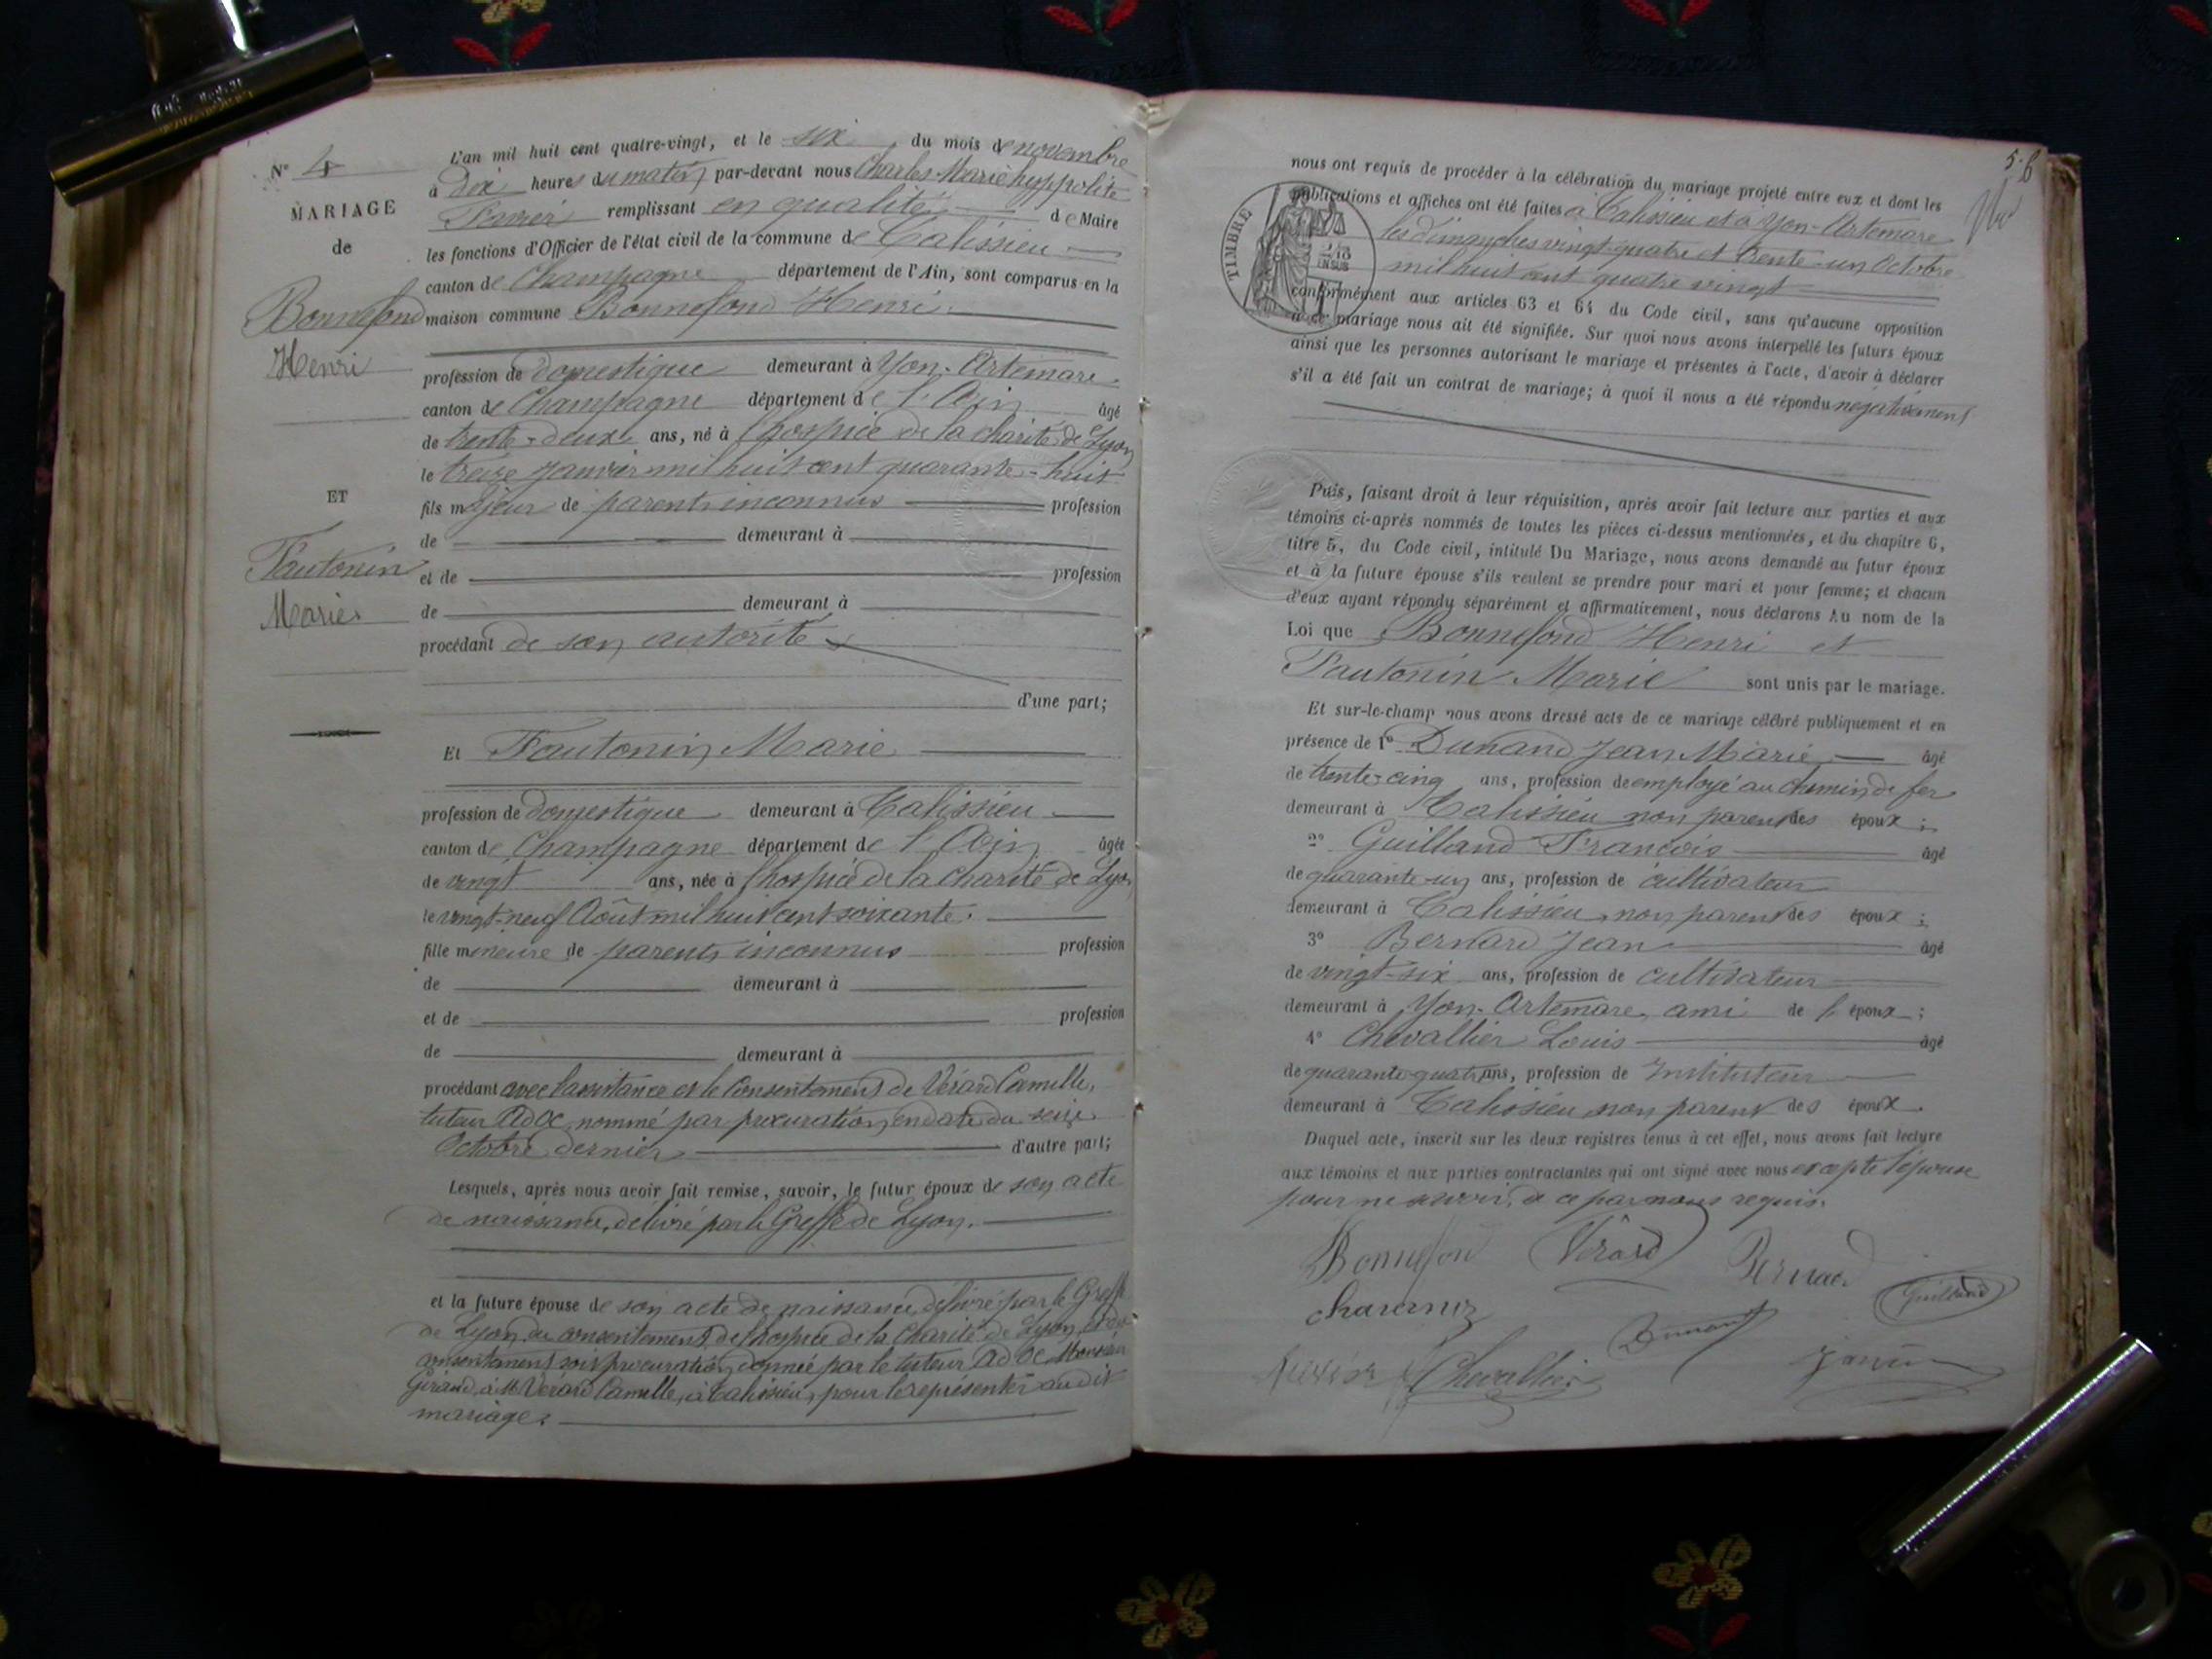 N° 4
MARIAGE
de
Bonnefond
Henri
ET
Fautonin
Marie
L'an mil huit cent quatre-vingt, et le six du mois de novembre
à dix heures du matin par-devant nous Charles Marie hyppolite
remplissant en qualité de Maire
les fonctions d'Officier de l'état civil de la commune de Talissieu
canton de Champagne département de l'Ain, sont comparus en la
maison commune Bonnefond Henri
profession de domestique demeurant à Yon-Artemare
canton de Champagne département de l'Ain âgé
de trente-deux ans, né à l'hospice de la charité de Lyon
le treize janvier mil huit cent quarante-huit
fils majeur de parents inconnus profession
de demeurant à
et de profession
de demeurant à
procédant de son autorité
d'une part;
Et Fautonin Marie
profession de domestique demeurant à Talissieu
canton de Champagne département de l'Ain âgée
de vingt ans, née à l'hospice de la Charité de Lyon
le vingt-neuf Août mil huit cent soixante.
fille mineure de parents inconnus profession
de demeurant à
et de profession
de demeurant à
procédant avec l'assistance et le Consentement de Vérard Camille,
tuteur Ad oc, nommé par procuration en date du seize
Octobre dernier d'autre part;
Lesquels, après nous avoir fait remise, savoir, le futur époux de son acte
de naissance, delivré par le Greffe de Lyon.
et la future épouse de son acte de naissance, délivré par le Greffe
de Lyon, du consentement de l'hospice de la Charité de Lyon, et du
consentement sous procuration donnée par le tuteur Ad oc
Girand, à Mr Vérard Camille, à Talissieu, pour le représenter audit
mariage.
5.6
nous ont requis de procéder à la célébration du mariage projeté entre eux et dont les
publications et affiches ont été faites à Talissieu et à Yon-Artemare
les dimanches vingt-quatre et trente-un Octobre
mil huit cent quatre vingt
TIMBRE
EN SUS
conformément aux articles 63 et 64 du Code civil, sans qu'aucune opposition
à ce mariage nous ait été signifiée. Sur quoi nous avons interpellé les futurs époux
ainsi que les personnes autorisant le mariage et présentes à l'acte, d'avoir à déclarer
s'il a été fait un contrat de mariage; à quoi il nous a été répondu negativement
Puis, faisant droit à leur réquisition, après avoir fait lecture aux parties et aux
témoins ci-après nommés de toutes les pièces ci-dessus mentionnées, et du chapitre 6,
titre 5, du Code civil, intitulé Du Mariage, nous avons demandé au futur époux
et à la future épouse s'ils veulent se prendre pour mari et pour femme; et chacun
d'eux ayant répondu séparément et affirmativement, nous déclarons Au nom de la
Loi que Bonnefond Henri et
Fautonin Marie sont unis par le mariage.
Et sur-le-champ nous avons dressé acte de ce mariage célébré publiquement et en
présence de 1° Dunand Jean Marie âgé
de trente-cinq ans, profession de employé au chemin de fer
demeurant à Talissieu non parent des époux;
2° Guilland François âgé
de quarante-un ans, profession de cultivateur
demeurant à Talissieu, non parent des époux;
3° Bernard Jean âgé
de vingt-six ans, profession de cultivateur
demeurant à Yon-Artemare, ami de l'époux;
4° Chevallier Louis âgé
de quarante-quatre ans, profession de Instituteur
demeurant à Talissieu non parent des époux.
Duquel acte, inscrit sur les deux registres tenus à cet effet, nous avons fait lecture
aux témoins et aux parties contractantes qui ont signé avec nous excepté l'épouse
pour ne savoir, de ce par nous requis.
Bonnefon Vérard Bernard
Guilland
Dunand
Chevallier